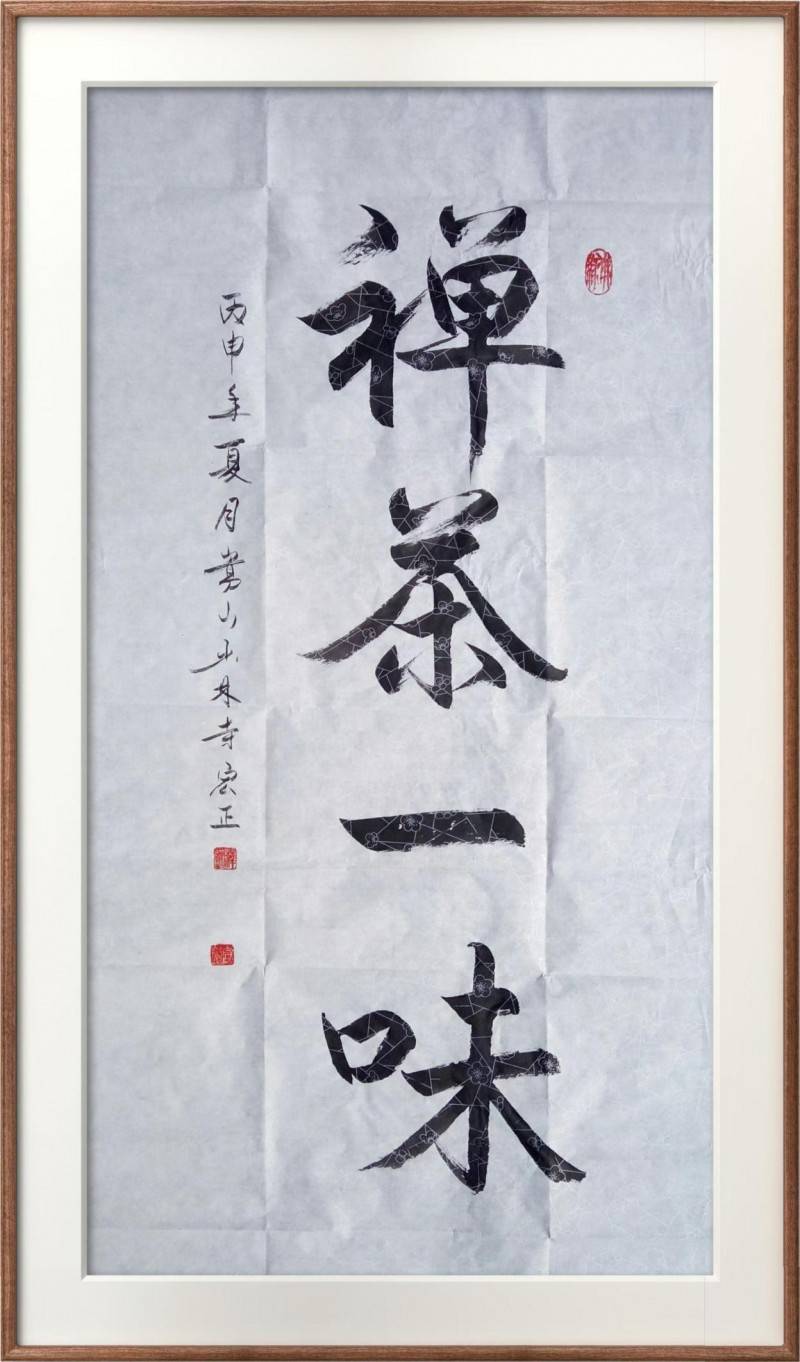 禅茶一味
丙申年夏月嵩山少林寺宏正